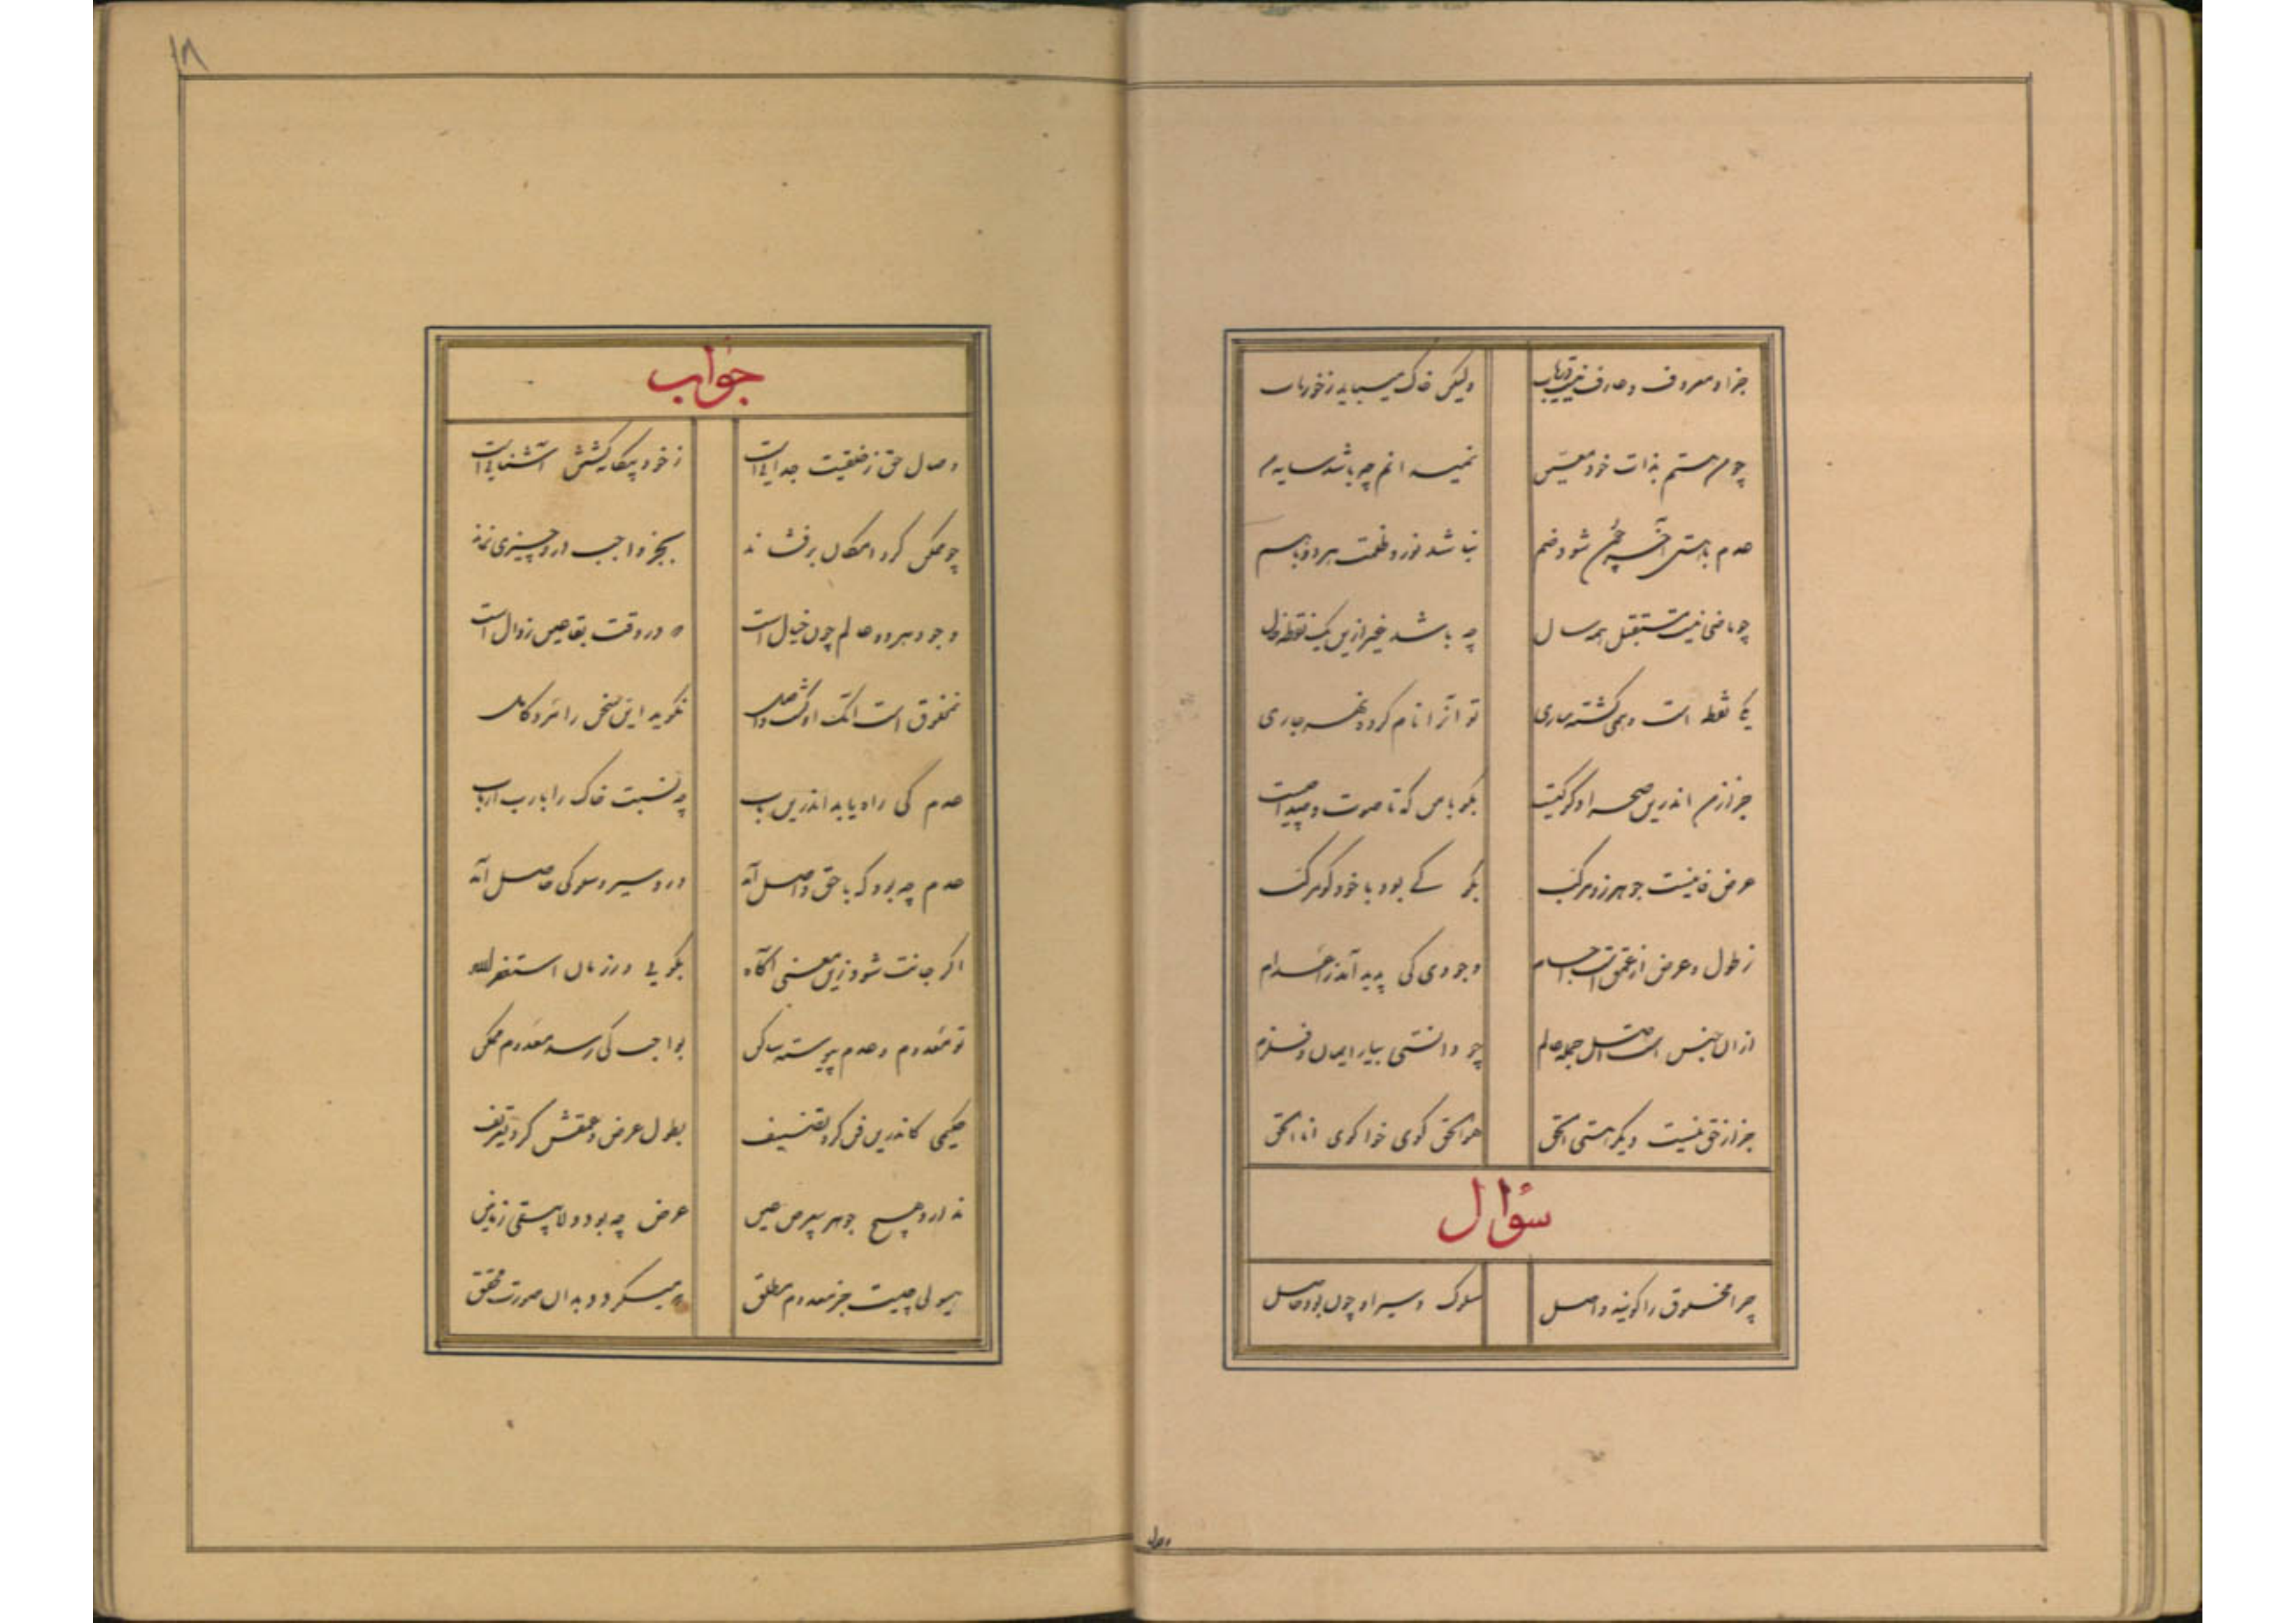 جز او معروف و عارف نیست دریاب ولیکن خاک می‌یابد ز خور تاب
چو من هستم بذات خود معین نمیدانم چه باشد سایه من
عدم با هستی آخر چون شود ضم نباشد نور و ظلمت هر دو با هم
چو ماضی نیست مستقبل مه و سال چه باشد غیر ازین یک نقطه حال
یکی نقطه است وهمی گشته ساری تو آنرا نام کرده نهر جاری
جز از من اندرین صحرا دگر کیست بگو با من که تا صوت و صدا چیست
عرض فانیست جوهر زو مرکب بگو کے بود یا خود کو مرکب
ز طول و عرض از عمق است اجسام وجودی کی پدید آمد ز اعدام
ازان جنس است اصل جمله عالم چو دانستی بیار ایمان و فالزم
جز از حق نیست دیگر هستی الحق هو الحق گوی خواه گوی انا الحق
سؤال
چرا مخلوق را گویند واصل سلوک و سیر او چون بود حاصل
وصال
۱۸
جواب
وصال حق ز خلقیت جدایی است ز خود بیگانه گشتن آشنایی است
چو ممکن گرد امکان برفشاند بجز واجب دگر چیزی نماند
وجود هر دو عالم چون خیال است که در وقت بقا عین زوال است
نه مخلوق است آنک او گشت واصل نگوید این سخن را مرد کامل
عدم کی راه یابد اندرین باب چه نسبت خاک را با رب ارباب
عدم چه بود که با حق واصل آید درو سیر و سلوکی حاصل آید
اگر جانت شود زین معنی آگاه بگویی در زمان استغفرالله
تو معدوم و عدم پیوسته ساکن بواجب کی رسد معدوم ممکن
حکیمی کاندرین فن کرد تصنیف بطول عرض و عمقش کرد تعریف
ندارد هیچ جوهر بی عرض عین عرض چه بود ولا یبقی زمانین
هیولی چیست جز معدوم مطلق که میگردد بدان صورت محقق